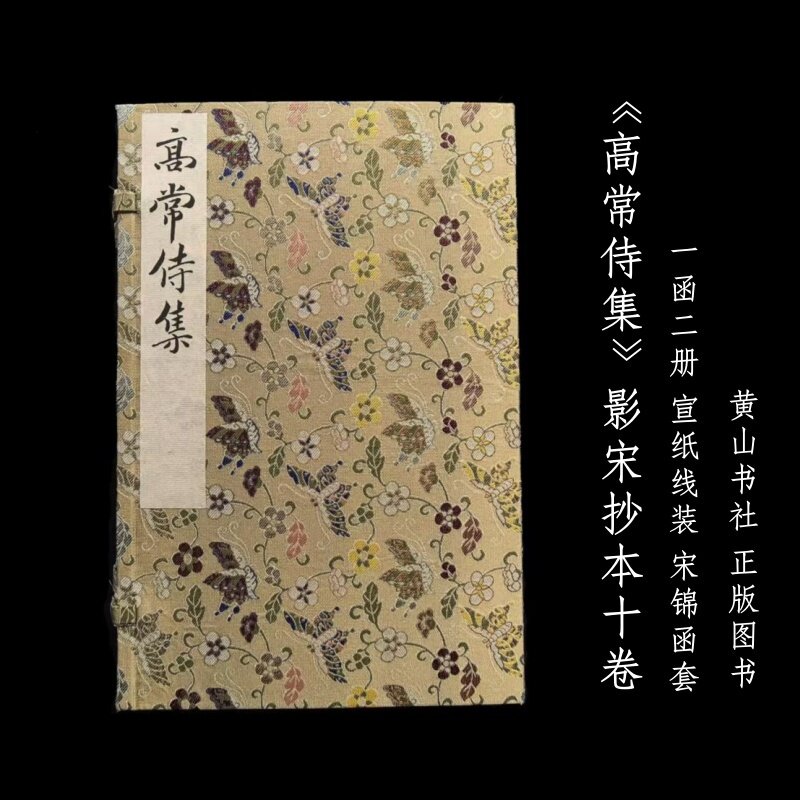 高常侍集
《高常侍集》影宋抄本十卷
一函二册 宣纸线装 宋锦函套
黄山书社 正版图书